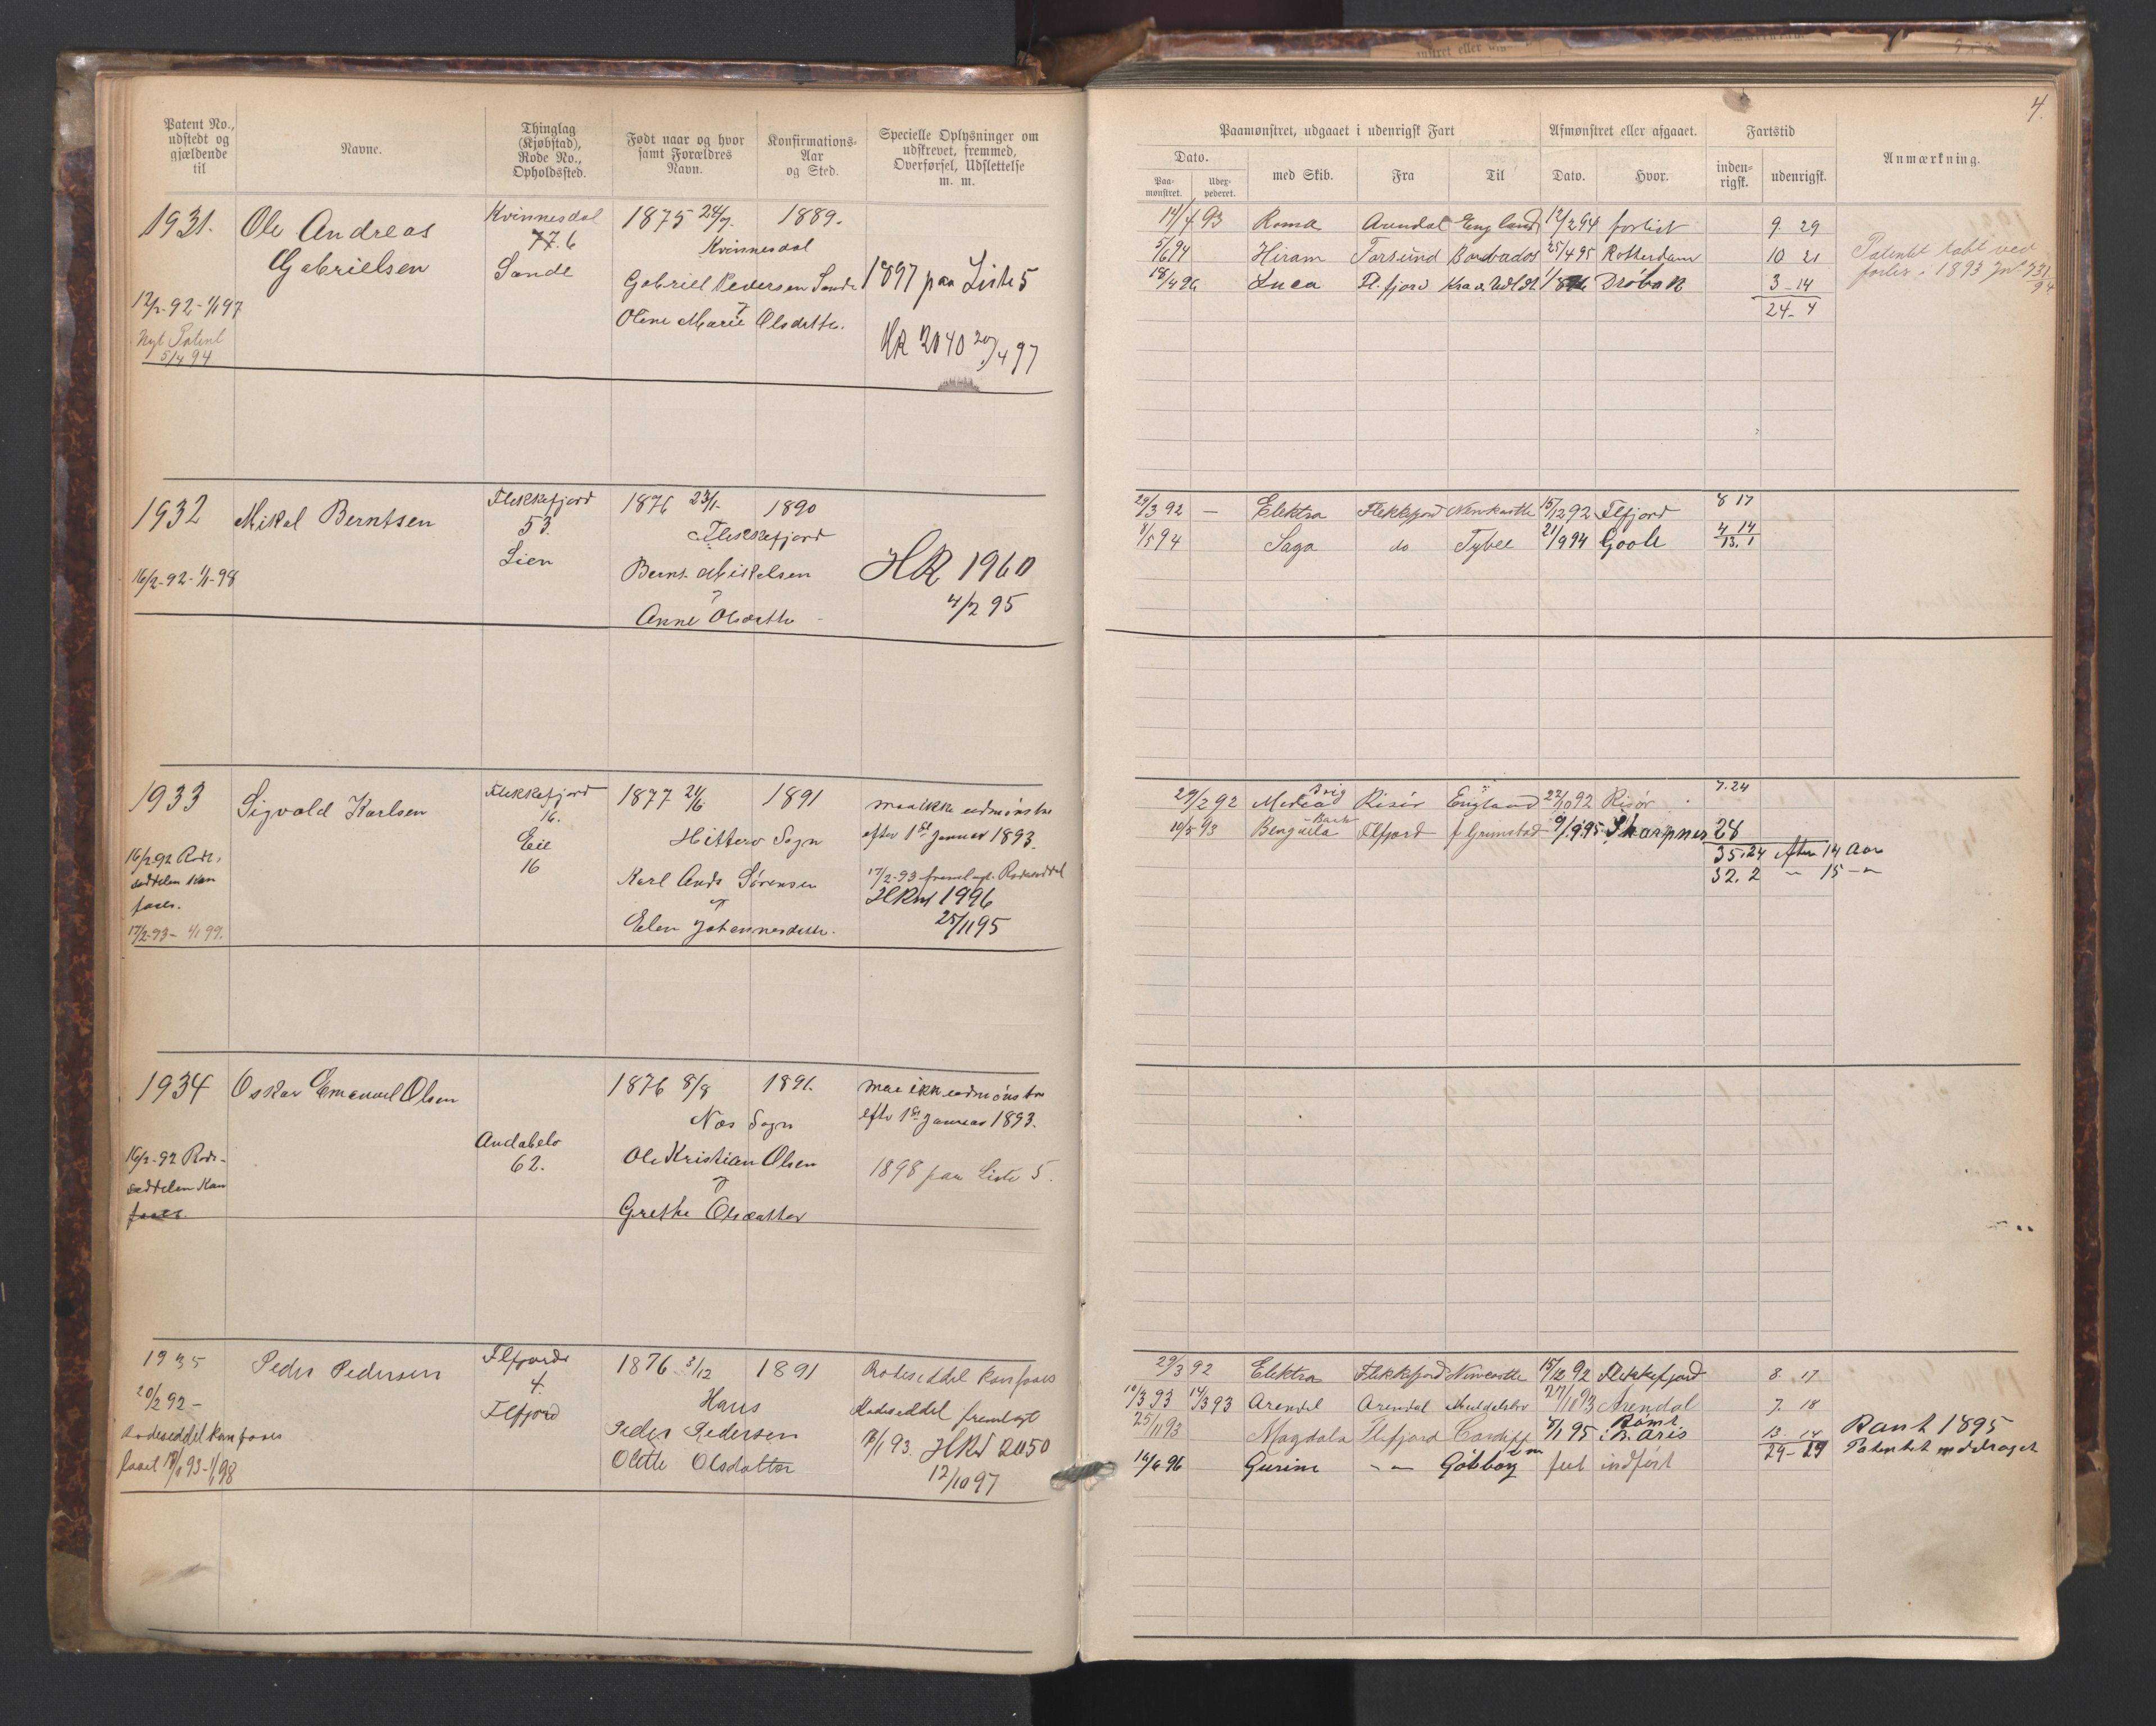 4.
Patent No., udstedt og gjældende til
Navne.
Thinglag (Kjøbstad), Rode No., Opholdssted.
Født naar og hvor samt Forældres Navn.
Konfirmations-Aar og Sted.
Specielle Oplysninger om udskrevet, fremmed, Overførsel, Udslettelse m. m.
Paamønstret, udgaaet i udenrigsk Fart
Afmønstret eller afgaaet.
Fartstid
Anmærkning.
Dato.
Paa-mønstret.
med Skib.
Fra
Til
Dato.
Hvor.
inden-rigsk.
udenrigsk.
1931.
Ole Andreas
Gabrielsen
12/2-92-1/1 97
Nyt Patent
5/4 94
Kvinnesdal
77.6
Sande
1875 24/7. 1889.
Kvinnesdal
Gabriel Pedersen Sande
og
Oline Marie Olsdatter.
1897 paa Liste 5
HR 2040 20/4 97
14/4 93 Roma Arendal England 12/2 94 forlist 9. 29
5/6 94 Hiram Farsund Barbados 25/4 95 Rotterdam 10 21
18/4 96 Luca Fl.fjord Drøbak 3-14
24-4
Patentet tabt ved
forlis i 1893
1932
Mikal Berntsen
16/2-92-1/1-98
Flekkefjord
53.
Lien
1876 23/1. 1890
Flekkefjord
Bernt Mikkelsen
og
Anne Olsdatter
HR 1960
4/2 95
29/3 92 — Elektra Flekkefjord Newcastle 15/12 92 Flfjord 8 17
8/5 94 Saga do Tybee 21/9 94 Goole 4 14
13. 1
1933
Sigvald Karlsen
16/2 92 Rode-
seddelen kan
faaes.
17/2-93- 1/1 99.
Flekkefjord
16.
Eie
16
1877 21/6 1891
Hitterø Sogn
Karl Ands Sørensen
og
Elen Johannesdatter.
maa ikke udmønstre
efter 1ste Januar 1893.
17/2-93 fremlagt Rodeseddel
HRnt 1996
25/11 95
29/2 92 Brig Risør England 22/10 92 Risør 7.24
10/5 93 Benguela Bark Flfjord f Grimstad 9/9 95 28
35.24 efter 14 Aar
32. 2 " 15 -"
1934
Oskar Emanuel Olsen
16/2-92 Rode-
seddelen kan
faaes.
Andabelø
62.
1876 8/8 1891.
Nes Sogn
Ole Kristian Olsen
og
Grethe Olsdatter
maa ikke udmønstre
efter 1ste Januar 1893.
1898 paa Liste 5.
1935
Peder Pedersen
20/2 92 -
Rodeseddel kan faaes
faaet 1/1 98
Flfjord
4.
Flfjord
1876 3/12 1891
Hans
Peder Pedersen
Olette Olsdatter
Rodeseddel kan faaes
Rodeseddel fremlagt
HRnt 2050
12/10 97
29/3 92 Elektra Flekkefjord Newcastle 15/12 92 Flekkefjord 8. 17
10/3 93 14/3 93 Arendal Arendal 27/10 93 Arendal 7. 18
25/11 93 Magdala Flfjord Cardiff 8/1 95 Rømt Paris 13-14
29-19
Rømt 1895
Patentet inddraget
16/6 96 Gurine - " - feil indført